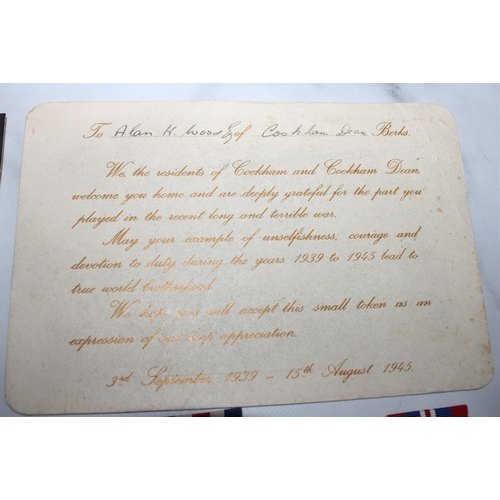 To Alan H. Wood Esq of Cookham Dean Berks.
We, the residents of Cookham and Cookham Dean,
welcome you home and are deeply grateful for the part you
played in the recent long and terrible war.
May your example of unselfishness, courage and
devotion to duty during the years 1939 to 1945 lead to
true world brotherhood.
We hope you will accept this small token as an
expression of our deep appreciation.
3rd September 1939 - 15th August 1945.